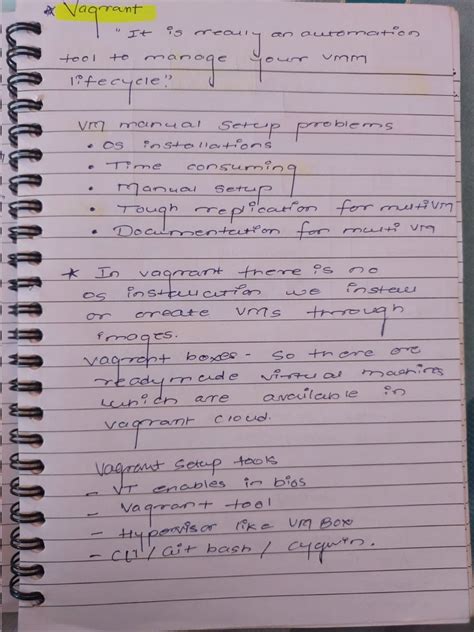 * Vagrant
"It is really an automation
tool to manage your VMM
lifecycle"
VM manual setup problems
• OS installations
• Time consuming
• Manual setup
• Tough replication for multi VM
• Documentation for multi VM
* In vagrant there is no
OS installation we install
or create VMs through
images.
Vagrant boxes - So there are
readymade virtual machines
which are available in
vagrant cloud.
Vagrant Setup tools
- VT enables in bios
- Vagrant tool
- Hypervisor like VM Box
- CLI / Git bash / Cygwin.